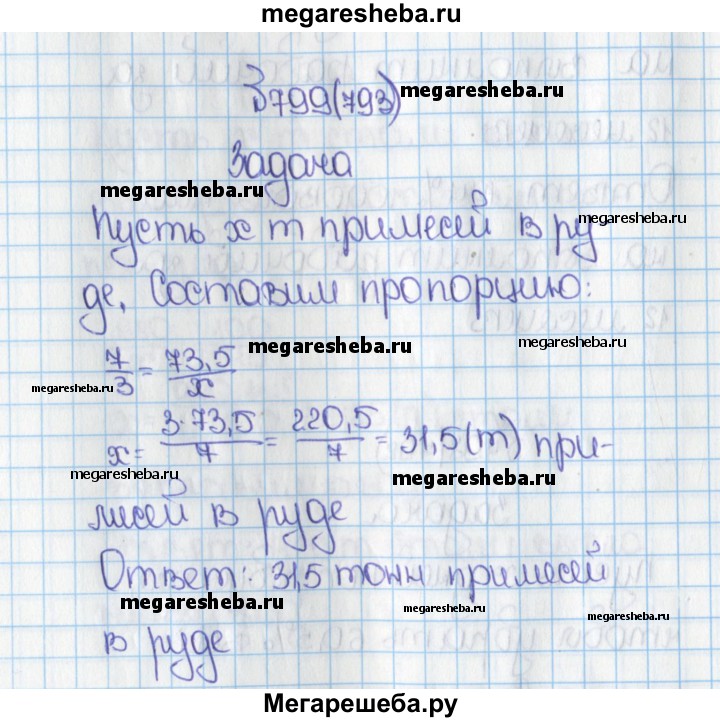 megaresheba.ru
З 799(793)
megaresheba.ru
Задача
megaresheba.ru
Пусть x т примесей в ру-
megaresheba.ru
де. Составим пропорцию:
7/3 = 73,5/x
megaresheba.ru
megaresheba.ru
megaresheba.ru
x = 3·73,5/7 = 220,5/7 = 31,5(т) при-
megaresheba.ru
megaresheba.ru
месей в руде
Ответ: 31,5 тонн примесей
megaresheba.ru
megaresheba.ru
megaresheba.ru
в руде
Мегарешеба.ру